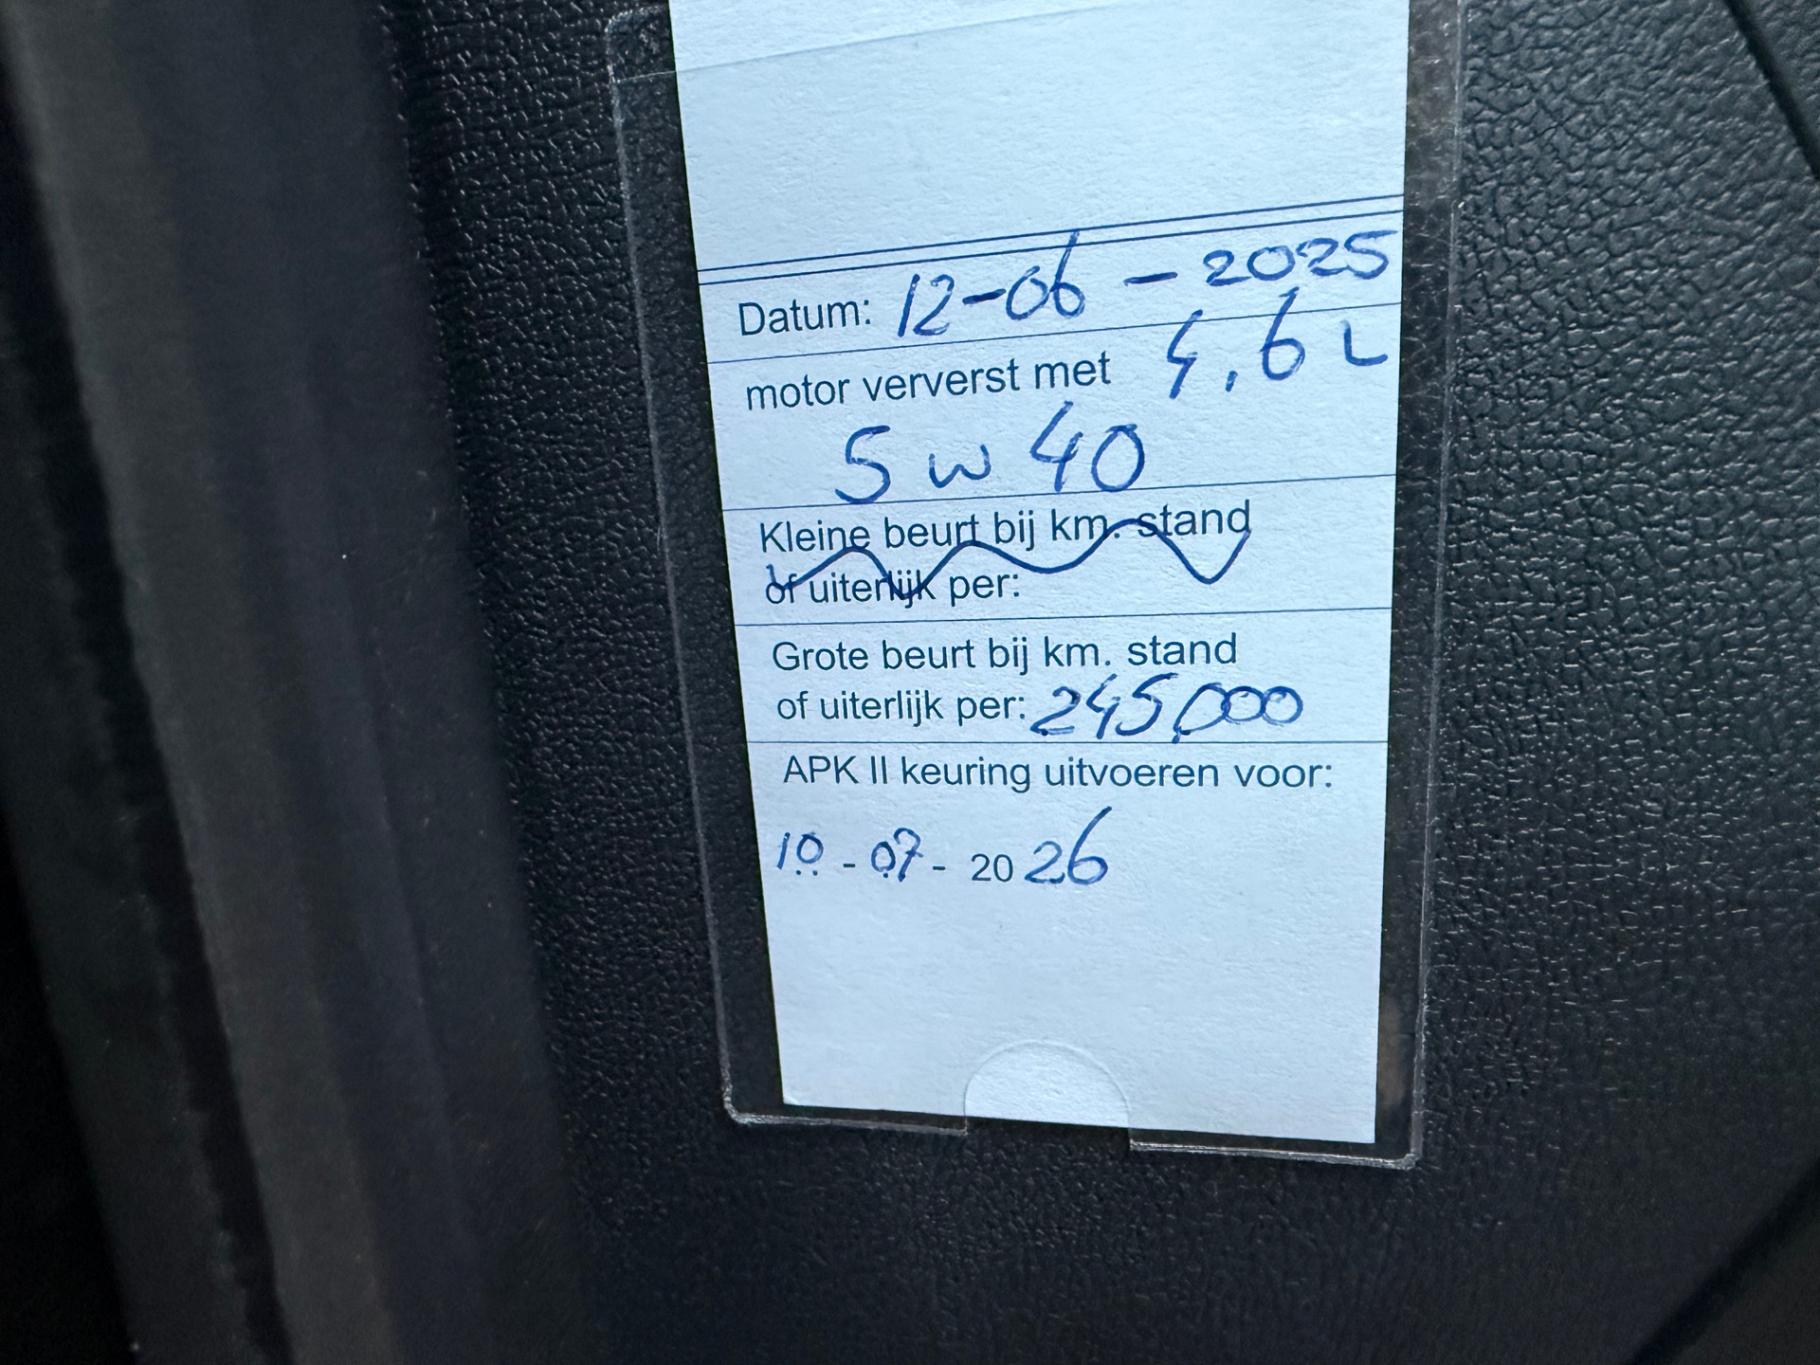 Datum: 12-06-2025
motor ververst met 4,6 L
5w40
Kleine beurt bij km. stand
of uiterlijk per:
Grote beurt bij km. stand
of uiterlijk per: 245,000
APK II keuring uitvoeren voor:
10-07-2026